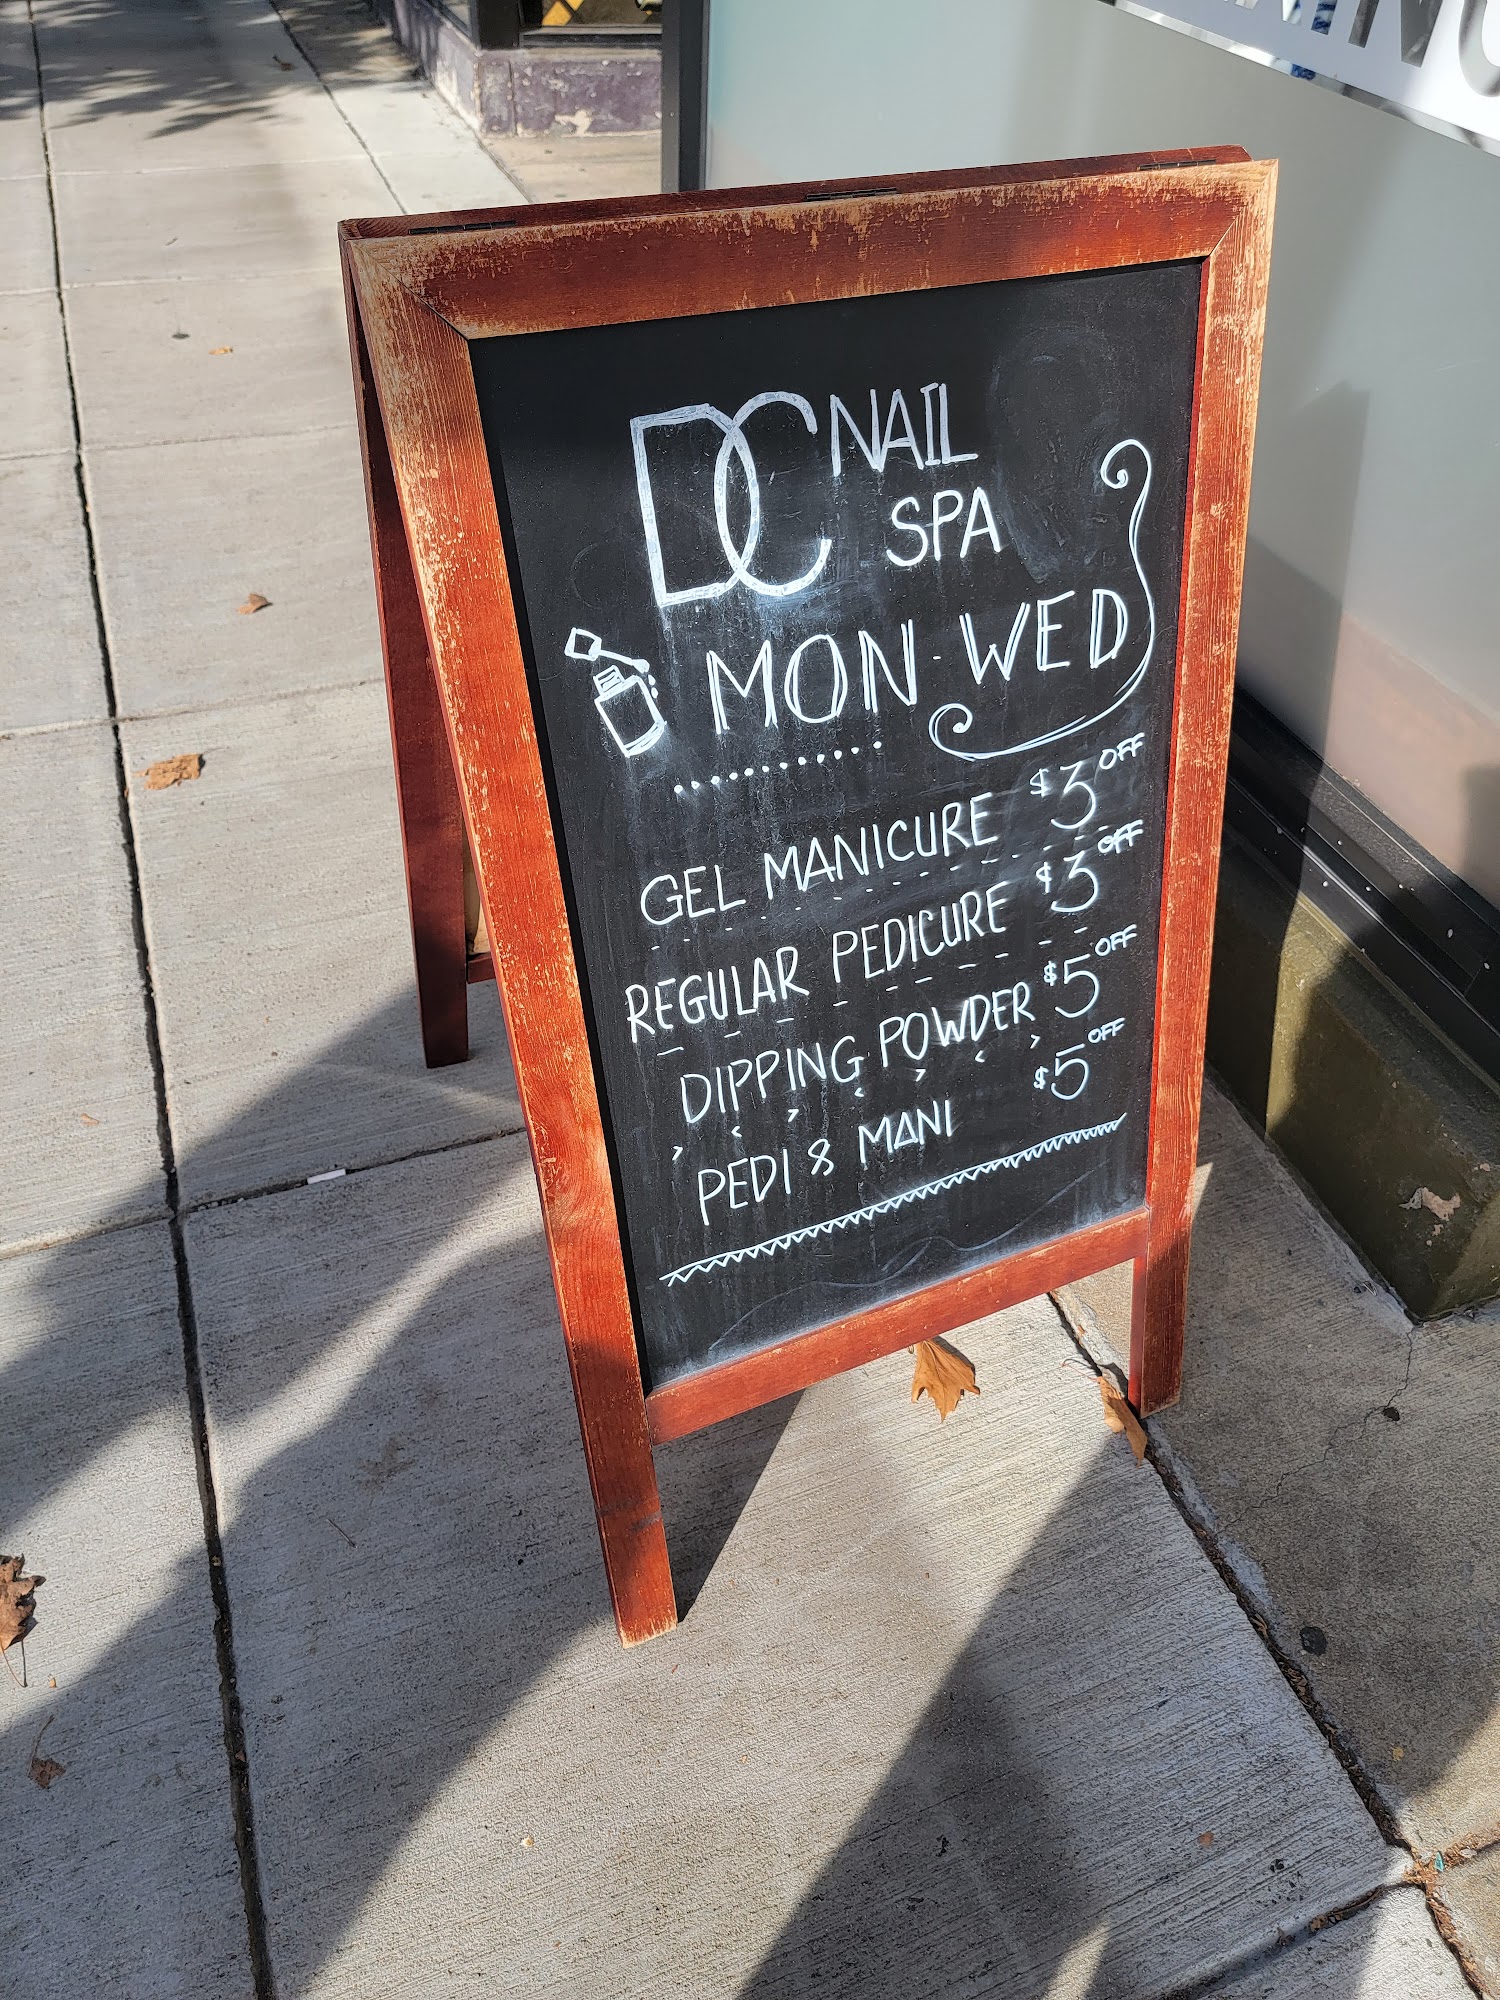 DC NAIL
SPA
MON-WED
GEL MANICURE $3 OFF
REGULAR PEDICURE $3 OFF
DIPPING POWDER $5 OFF
PEDI & MANI $5 OFF